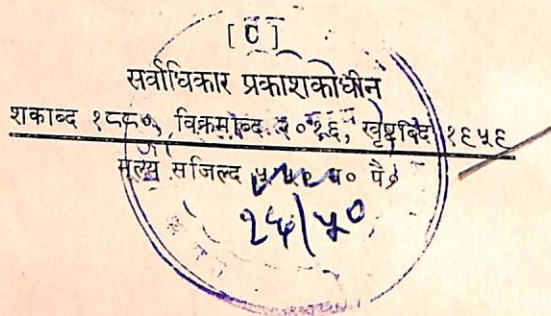 [ C ]
सर्वाधिकार प्रकाशकाधीन
शकाब्द १८८०, विक्रमाब्द २०१६, खृष्टाब्द १६५६
मूल्य सजिल्द न० पै०
१६/५०